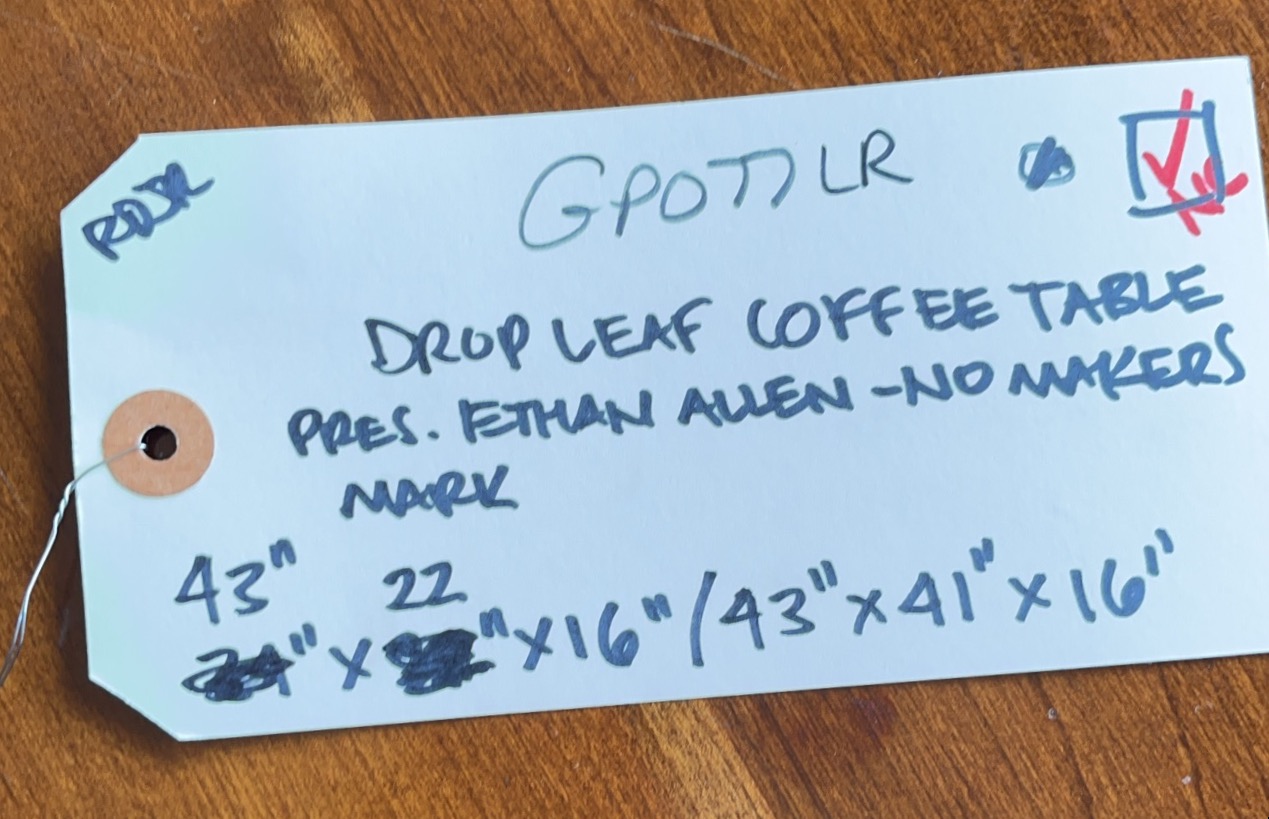 GPOTTLR
DROP LEAF COFFEE TABLE
PRES. ETHAN ALLEN -NO MAKERS
MARK
43" 22
" x "x16"/43"x41"x16"